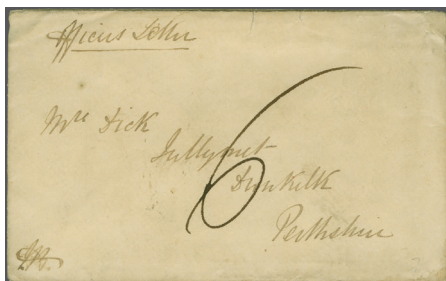 Officers Letter
Mrs Dick
Tullymet
6
Dunkeld
Perthshire